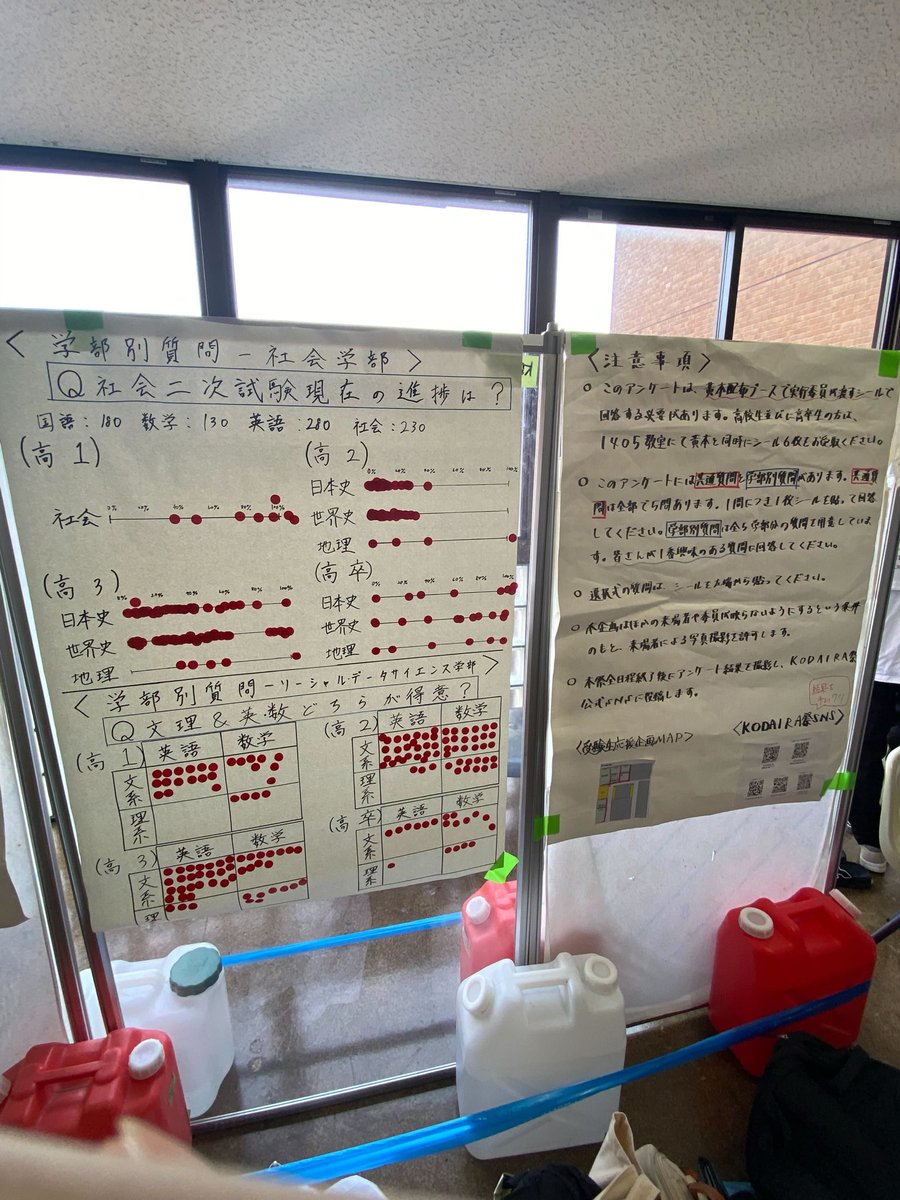 ＜学部別質問－社会学部＞
Q 社会二次試験現在の進捗は？
国語：180 数学：130 英語：280 社会：230
(高1)
社会
(高2)
0% 20% 40% 60% 80% 100%
日本史
世界史
地理
(高3)
日本史
世界史
地理
(高卒)
0% 20% 40% 60% 80% 100%
日本史
世界史
地理
＜学部別質問－ソーシャル・データサイエンス学部＞
Q 文理＆英・数どちらが得意？
(高1)
英語 数学
文系
理系
(高2)
英語 数学
文系
理系
(高3)
英語 数学
文系
理
(高卒)
英語 数学
文系
理系
＜注意事項＞
○ このアンケートは、黄本配布ブースで実行委員が渡すシールで
回答する必要があります。高校生並びに高卒生の方は、
1405教室にて黄本と同時にシール6枚をお受取ください。
○ このアンケートには共通質問と学部別質問があります。共通質
問は全部で5問あります。1問につき1枚シールを貼って回答
してください。学部別質問は全5学部分の質問を用意していま
す。皆さんが1番興味のある質問に回答してください。
○ 選択式の質問は、シールを左端から貼ってください。
○ 本企画はほかの来場者や委員が映らないようにするという条件
のもと、来場者による写真撮影を許可します。
○ 本祭全日程終了後にアンケート結果を撮影し、KODAIRA祭
公式SNSに投稿します。
結果を
チェック!!
＜受験生応援企画MAP＞
＜KODAIRA祭SNS＞